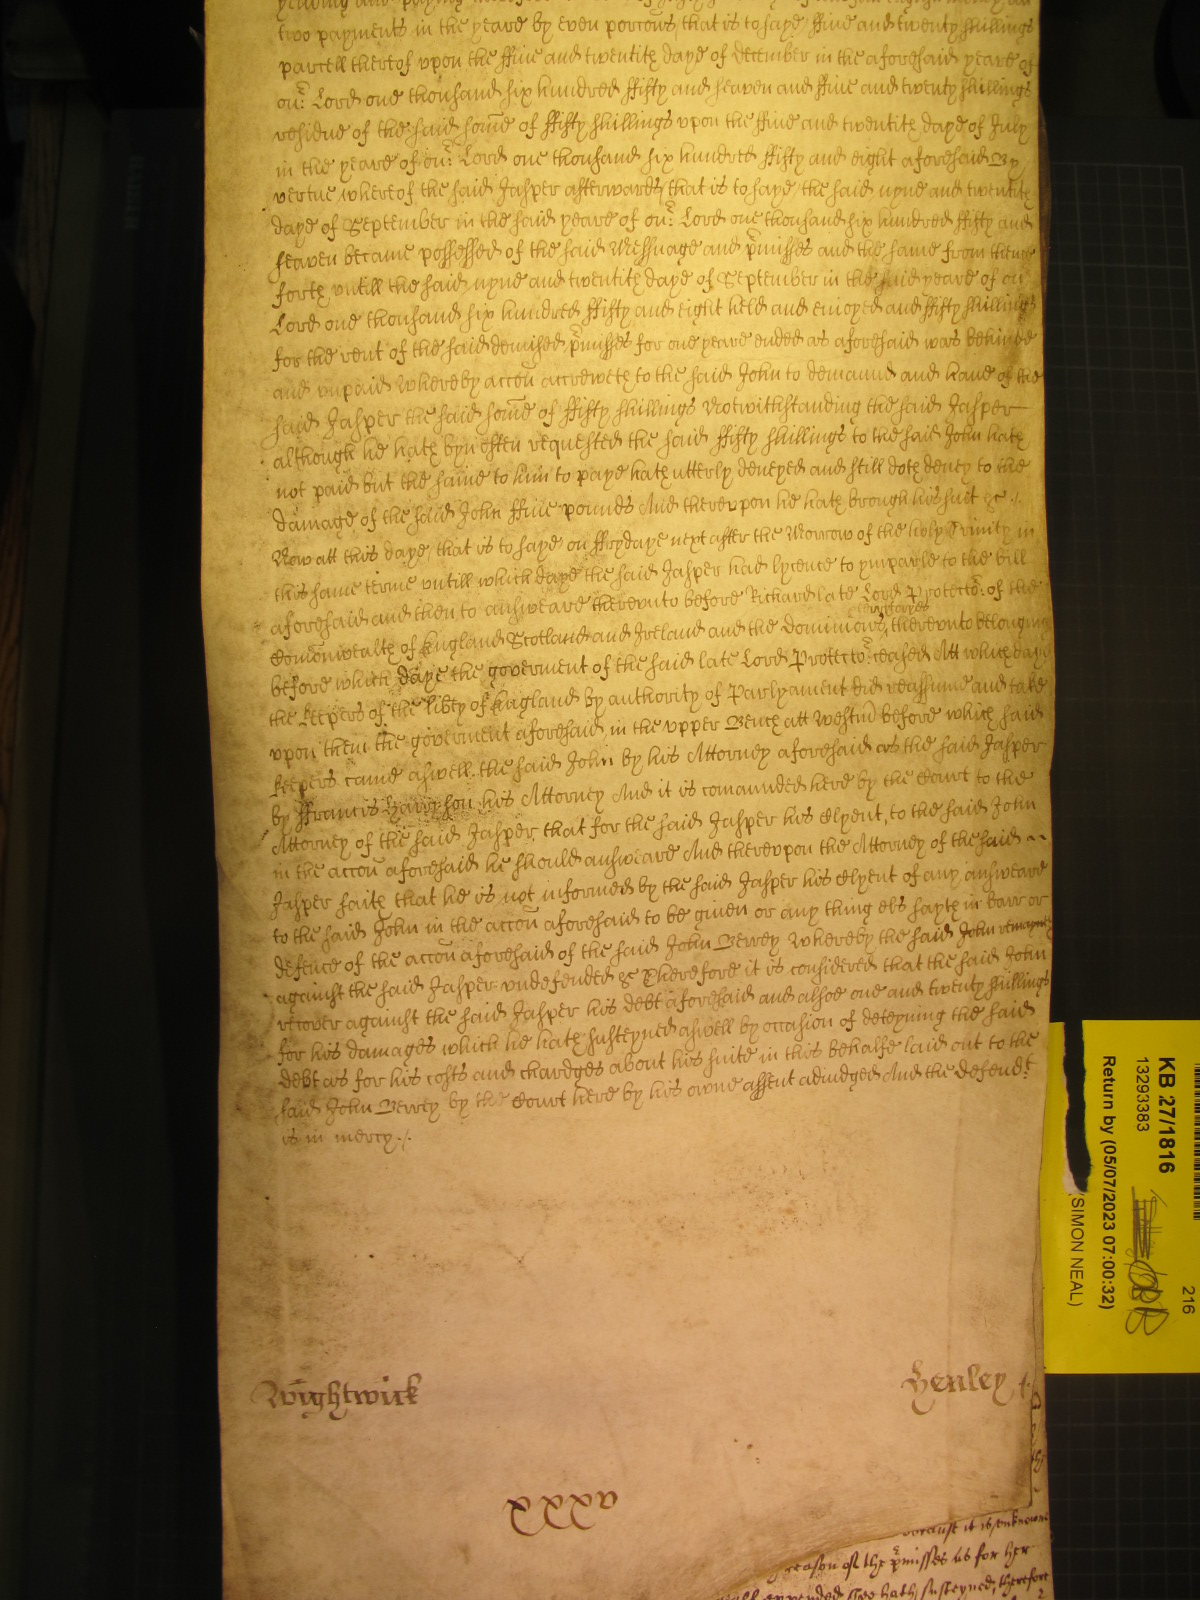 two payments in the yeare by even porcons, that is to saye, ffiue and twenty shillings
parcell thereof vpon the ffiue and twentith daye of December in the aforesaid yeare of
our Lord one thousand six hundred ffifty and seaven and ffiue and twenty shillings
residue of the said some of ffifty shillings vpon the ffiue and twentith daye of July
in the yeare of our Lord one thousand six hundred ffifty and eight aforesaid By
vertue whereof the said Jasper afterwards, that is to saye, the said nyne and twentith
daye of September in the said yeare of our Lord one thousand six hundred ffifty and
seaven became possessed of the said Messuage and pmisses and the same from thence
forth vntill the said nyne and twentith daye of September in the said yeare of our
Lord one thousand six hundred ffifty and eight held and enioyed and ffifty shillings
for the rent of the said demised pmisses for one yeare ended as aforesaid was behinde
and vnpaid Whereby accon accreweth to the said John to demaund and haue of the
said Jasper the said some of ffifty shillings Notwithstanding the said Jasper
although he hath byn often requested the said ffifty shillings to the said John hath
not paid but the same to him to paye hath utterly denyed and still doth deny to the
damage of the said John ffiue pounds And therevpon he hath brough his suit &c ./.
Now att this daye, that is to saye on ffrydaye next after the Morrow of the holy Trinity in
this same terme vntill which daye the said Jasper had lycence to ymparle to the bill
aforesaid and then to answeare therevnto before Richard late Lord Protector of the
Comonwealth of England Scotland and Ireland and the dominions, therevnto belonging
before which daye the goverment of the said late Lord Protector ceased Att which daye
the keepers of the libty of England by authority of Parlyament did reassume and take
vpon them the goverment aforesaid in the vpper Bench att Westm before which said
keepers came aswell the said John by his Attorney aforesaid as the said Jasper
by ffrancis Harryson his Attorney And it is comaunded here by the Court to the
Attorney of the said Jasper that for the said Jasper his Clyent, to the said John
in the accon aforesaid he should answeare And therevpon the Attorney of the said
Jasper saith that he is not informed by the said Jasper his Clyent of any answeare
to the said John in the accon aforesaid to be given or any thing els sayth in barr or
defence of the accon aforesaid of the said John Berrey Whereby the said John remayneth
against the said Jasper vndefended &c Therefore it is considered that the said John
recover against the said Jasper his debt aforesaid and alsoe one and twenty shillings
for his damages which he hath susteyned aswell by occasion of deteyning the said
debt as for his costs and chardges about his suite in this behalfe laid out to the
said John Berrey by the Court here by his owne assent adiudged And the defendt
is in mercy ./.
Wightwick
Henley
xxxv
because it is vnknowne
reason of the pmisses as for her
hath susteyned, therefore
KB 27/1816
13293383
Return by (05/07/2023 07:00:32)
(SIMON NEAL)
216